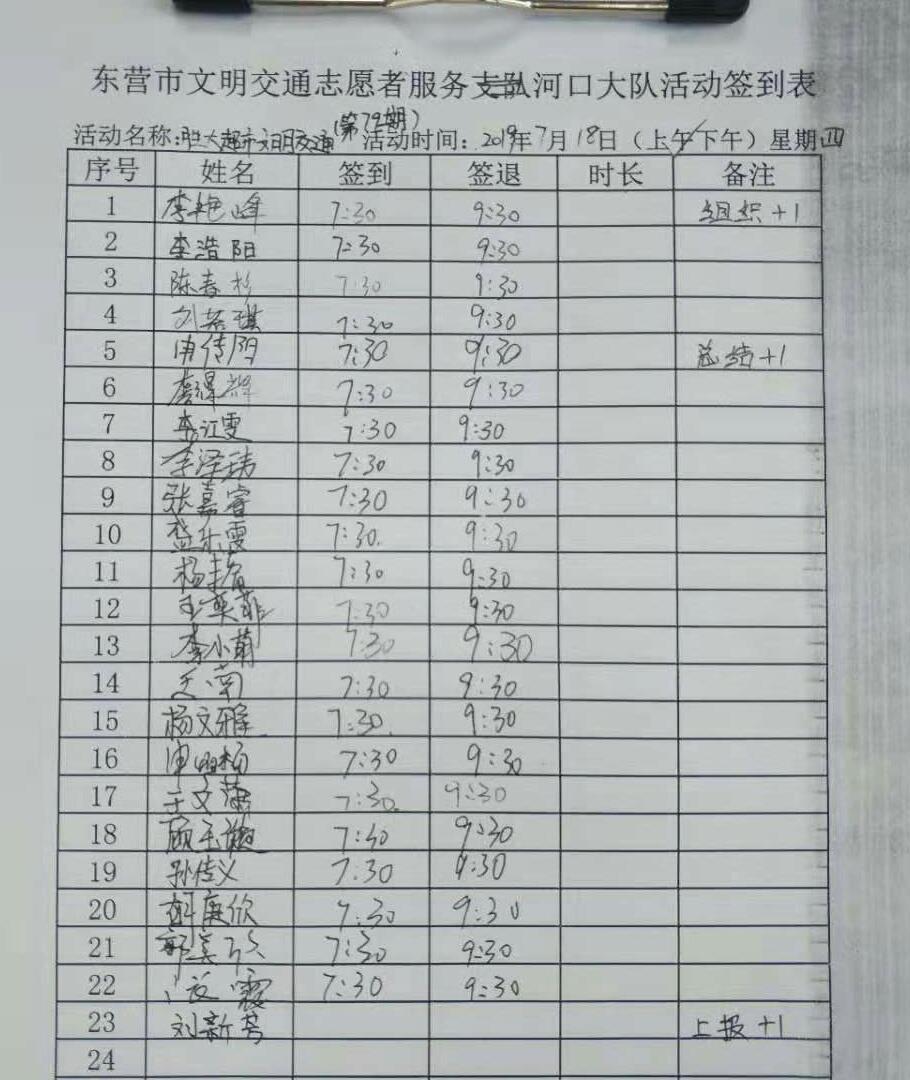 东营市文明交通志愿者服务支队河口大队活动签到表
(第72期)
活动名称:胜大超市文明交通 活动时间:2019年7月18日(上午/下午)星期四
序号 姓名 签到 签退 时长 备注
1 李艳峰 7:30 9:30 组织+1
2 李浩阳 7:30 9:30
3 陈春杉 7:30 9:30
4 刘若琪 7:30 9:30
5 申传阳 7:30 9:30 总结+1
6 7:30 9:30
7 李江雯 7:30 9:30
8 李泽玮 7:30 9:30
9 张嘉睿 7:30 9:30
10 盛乐雯 7:30. 9:30
11 7:30 9:30
12 王英菲 7:30 9:30
13 李小萌 7:30 9:30
14 7:30 9:30
15 杨文雅 7:30. 9:30
16 7:30 9:30
17 7:30. 9:30
18 7:30 9:30
19 孙传义 7:30 9:30
20 7:30 9:30
21 7:30 9:30
22 7:30 9:30
23 刘新芳 上报+1
24